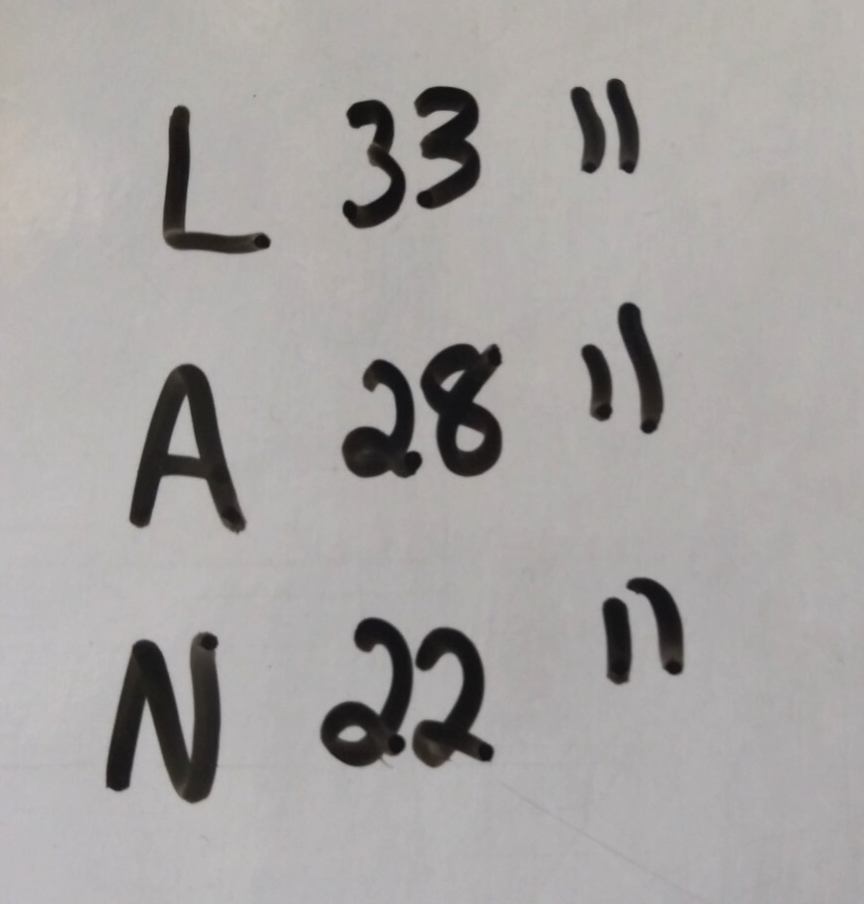 L 33 "
A 28 "
N 22 "